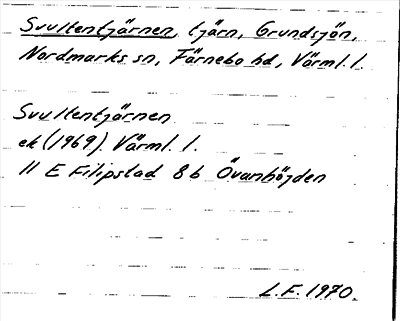 Svultentjärnen, tjärn, Grundsjön,
Nordmarks sn, Färnebo hd, Värml. l.
Svultentjärnen
ek (1969). Värml. l.
11 E Filipstad 8 b Övanhöjden
L.F. 1970.